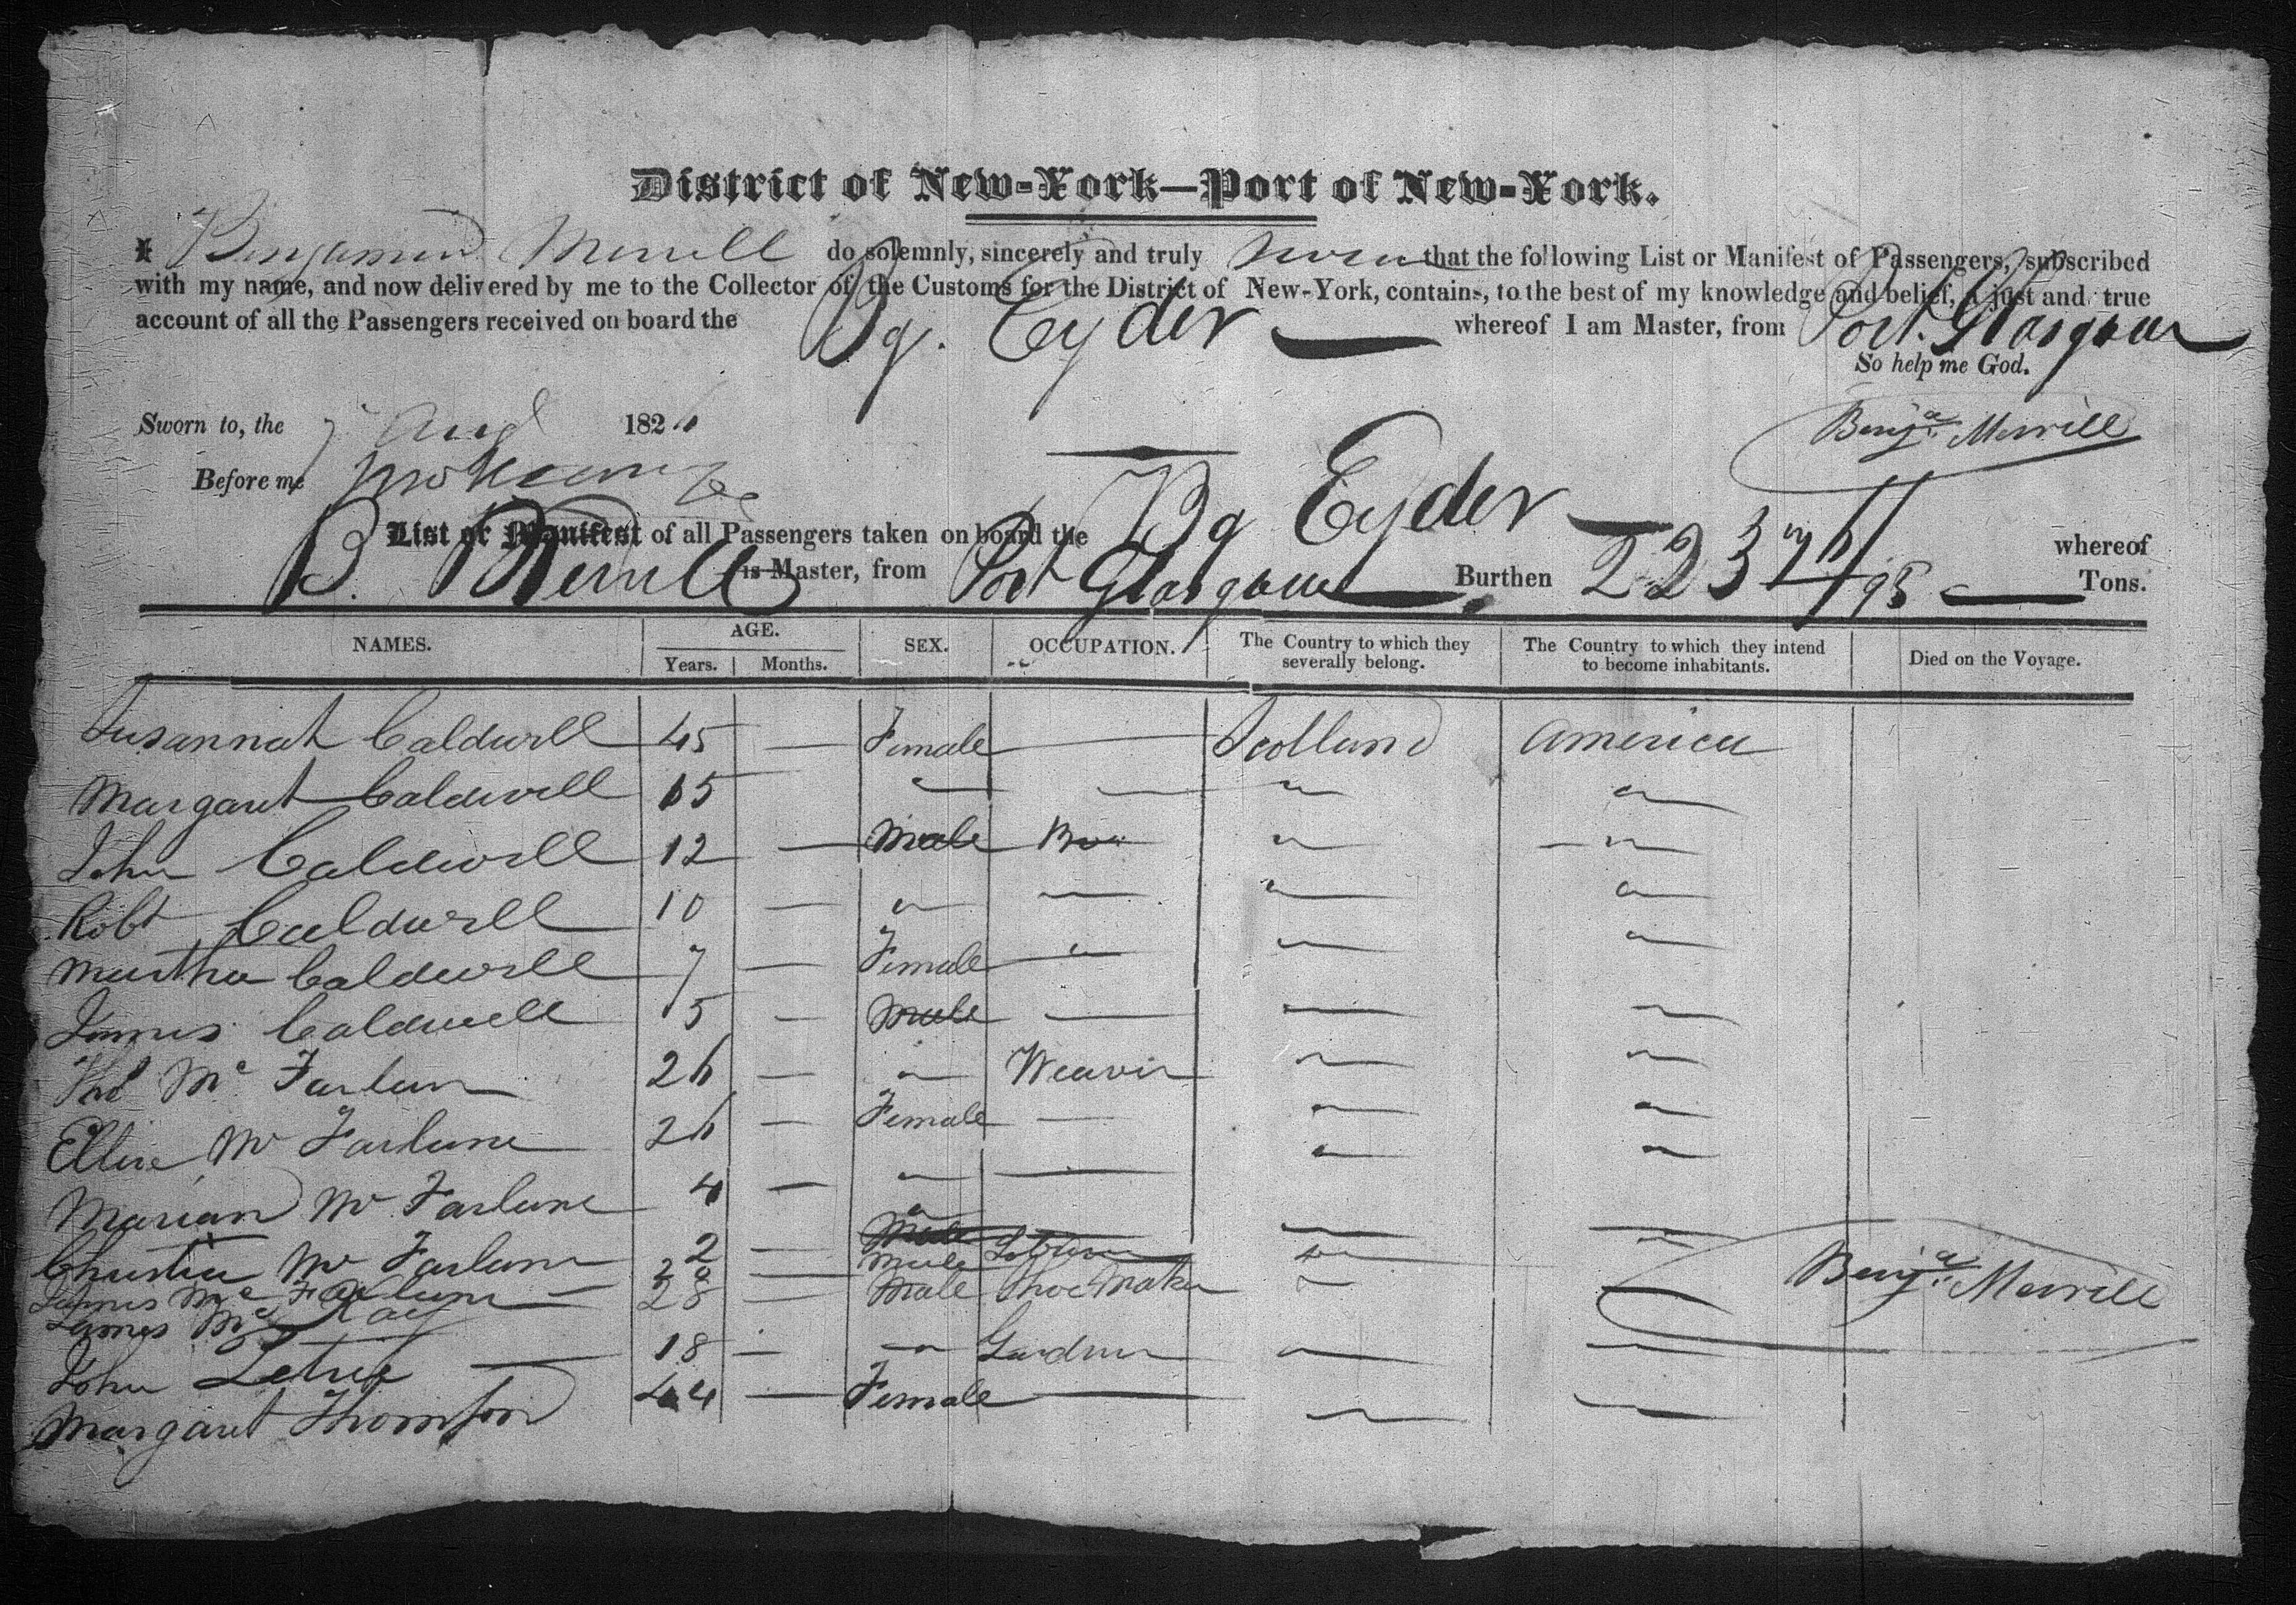 District of New-York—Port of New-York.
I Benjamin Merrill do solemnly, sincerely and truly swear that the following List or Manifest of Passengers, subscribed
with my name, and now delivered by me to the Collector of the Customs for the District of New-York, contains, to the best of my knowledge and belief, a just and true
account of all the Passengers received on board the Bg. Eyder whereof I am Master, from Port Glasgow
So help me God.
Sworn to, the 7 Aug 1826
Benja. Merrill
Before me
List or Manifest of all Passengers taken on board the Bg Eyder whereof
B. Merrill is Master, from Port Glasgow Burthen 223 /95 Tons.
NAMES. AGE. SEX. OCCUPATION. The Country to which they severally belong. The Country to which they intend to become inhabitants. Died on the Voyage.
Years. Months.
Susannah Caldwell 45 — Female — Scotland America
Margaret Caldwell 15 — " — " "
John Caldwell 12 — Male " "
Robt Caldwell 10 — " — " "
Martha Caldwell 7 — Female " " "
James Caldwell 5 — Male — " "
Mc Farlan 26 — " Weaver " "
Mc Farlane 26 — Female — " "
Marian Mc Farlane 4 — " — " "
Mc Farlane 2 — "
James Mc Farlane 28 — Male
James Mc Kay 28 — Male Shoe Maker "
Benja. Merrill
John 18 — " Gardner " "
Margaret Thomson 44 — Female — " "